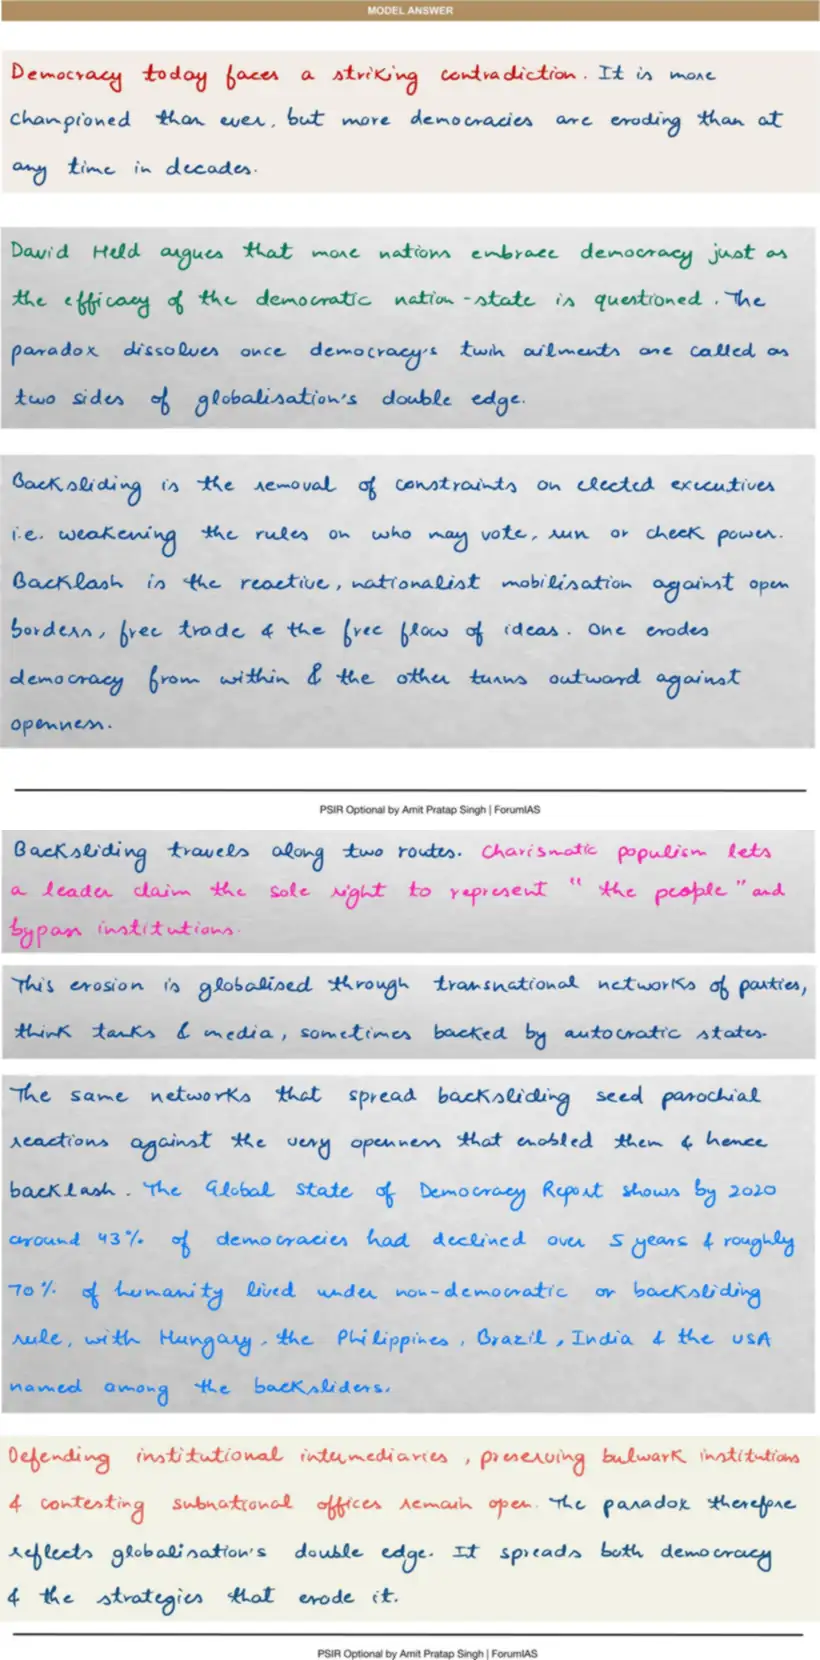 MODEL ANSWER
Democracy today faces a striking contradiction. It is more
championed than ever, but more democracies are eroding than at
any time in decades.
David Held argues that more nations embrace democracy just as
the efficacy of the democratic nation-state is questioned. The
paradox dissolves once democracy's twin ailments are called as
two sides of globalisation's double edge.
Backsliding is the removal of constraints on elected executives
i.e. weakening the rules on who may vote, run or check power.
Backlash is the reactive, nationalist mobilisation against open
borders, free trade & the free flow of ideas. One erodes
democracy from within & the other turns outward against
openness.
PSIR Optional by Amit Pratap Singh | ForumIAS
Backsliding travels along two routes. Charismatic populism lets
a leader claim the sole right to represent "the people" and
bypass institutions.
This erosion is globalised through transnational networks of parties,
think tanks & media, sometimes backed by autocratic states.
The same networks that spread backsliding seed parochial
reactions against the very openness that enabled them & hence
backlash. The Global State of Democracy Report shows by 2020
around 43% of democracies had declined over 5 years & roughly
70% of humanity lived under non-democratic or backsliding
rule, with Hungary, the Philippines, Brazil, India & the USA
named among the backsliders.
Defending institutional intermediaries, preserving bulwark institutions
& contesting subnational offices remain open. The paradox therefore
reflects globalisation's double edge. It spreads both democracy
& the strategies that erode it.
PSIR Optional by Amit Pratap Singh | ForumIAS